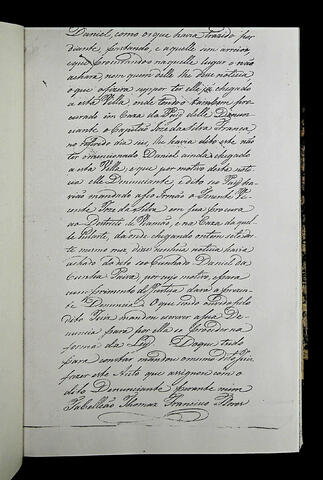 Daniel, como o que havia trazido por
diante, puxando, e aquelle sem arreios,
e que procurando-os naquelle lugar o não
achara, nem quem delle lhe dese noticia
o que o fizera suppor ter elle já chegado
a esta Villa onde tendo o tambem pro
curado em Caza do Pay delle Denun
ciante o Capitão José da Silva França
no referido dia seis, lhe havia dito este não
ter o mencionado Daniel ainda chegado
a esta Villa, e que por motivo desta noti
cia elle Denunciante, e dito seo Pay ha
vião mandado a seo Irmão o Tenente Vi
cente José da Silva em sua procura
ao Destricto de Viamão, e na Caza da qual
de Vidarte, da onde chegando ontem sete des
te mesmo mez disse nenhuma noticia havia
achado do dito seo Cunhado Daniel da
Cunha Paiva, por cujo motivo, e para
cumprimento de Justiça dava a prezen
te Denuncia. O que sendo ouvido pelo
dito Juiz mandou escrever a sua De
nuncia para por ella se proceder na
forma da Ley. Do que tudo
para constar mandou o mesmo dito Juiz
fazer este Auto que assignou com o
dito Denunciante perante mim
Tabellião Thomaz Francisco Flores